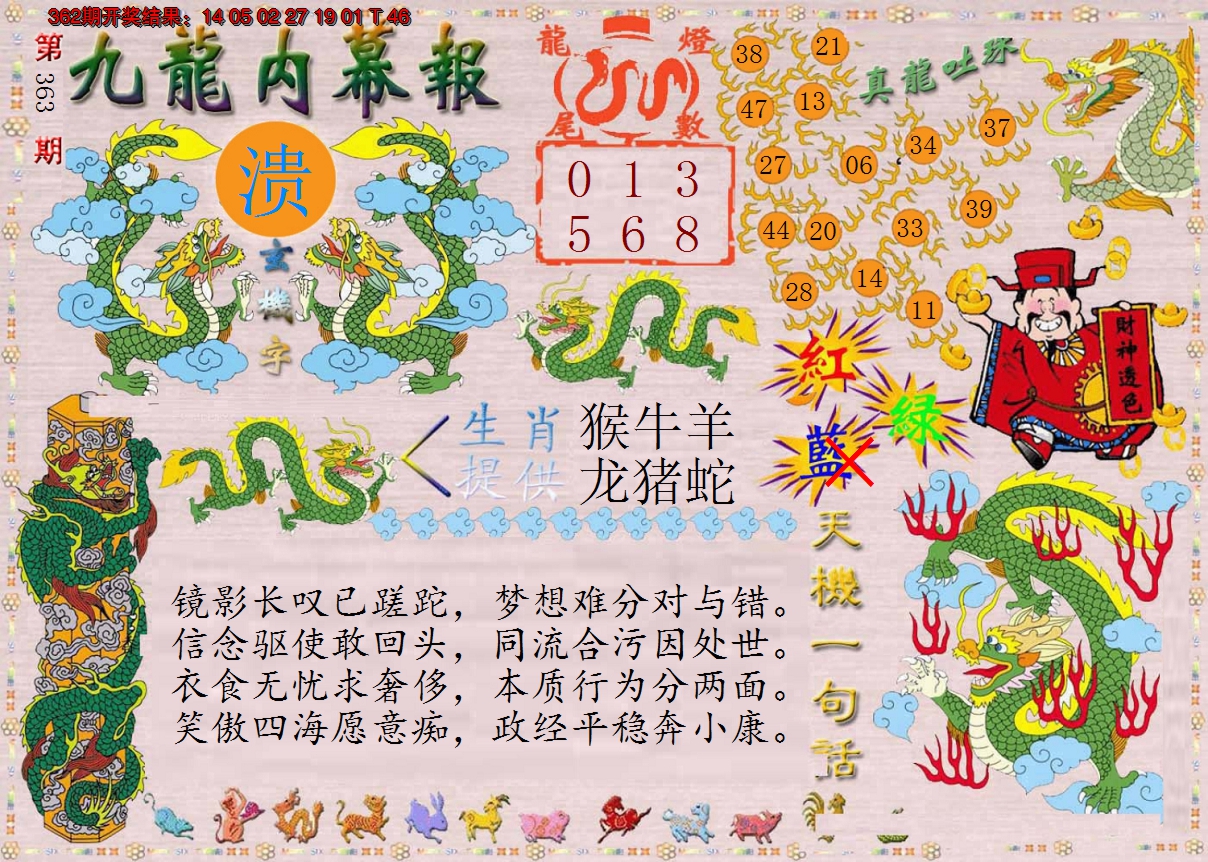 362期开奖结果：14 05 02 27 19 01 T 46
第363期
九龍内幕報
溃
玄機字
龍燈
尾數
0 1 3
5 6 8
真龍吐珠
38
21
47
13
37
34
27
06
39
44
20
33
14
28
11
紅
綠
藍
財神透色
生肖提供
猴牛羊
龙猪蛇
天機一句话
镜影长叹已蹉跎，梦想难分对与错。
信念驱使敢回头，同流合污因处世。
衣食无忧求奢侈，本质行为分两面。
笑傲四海愿意痴，政经平稳奔小康。